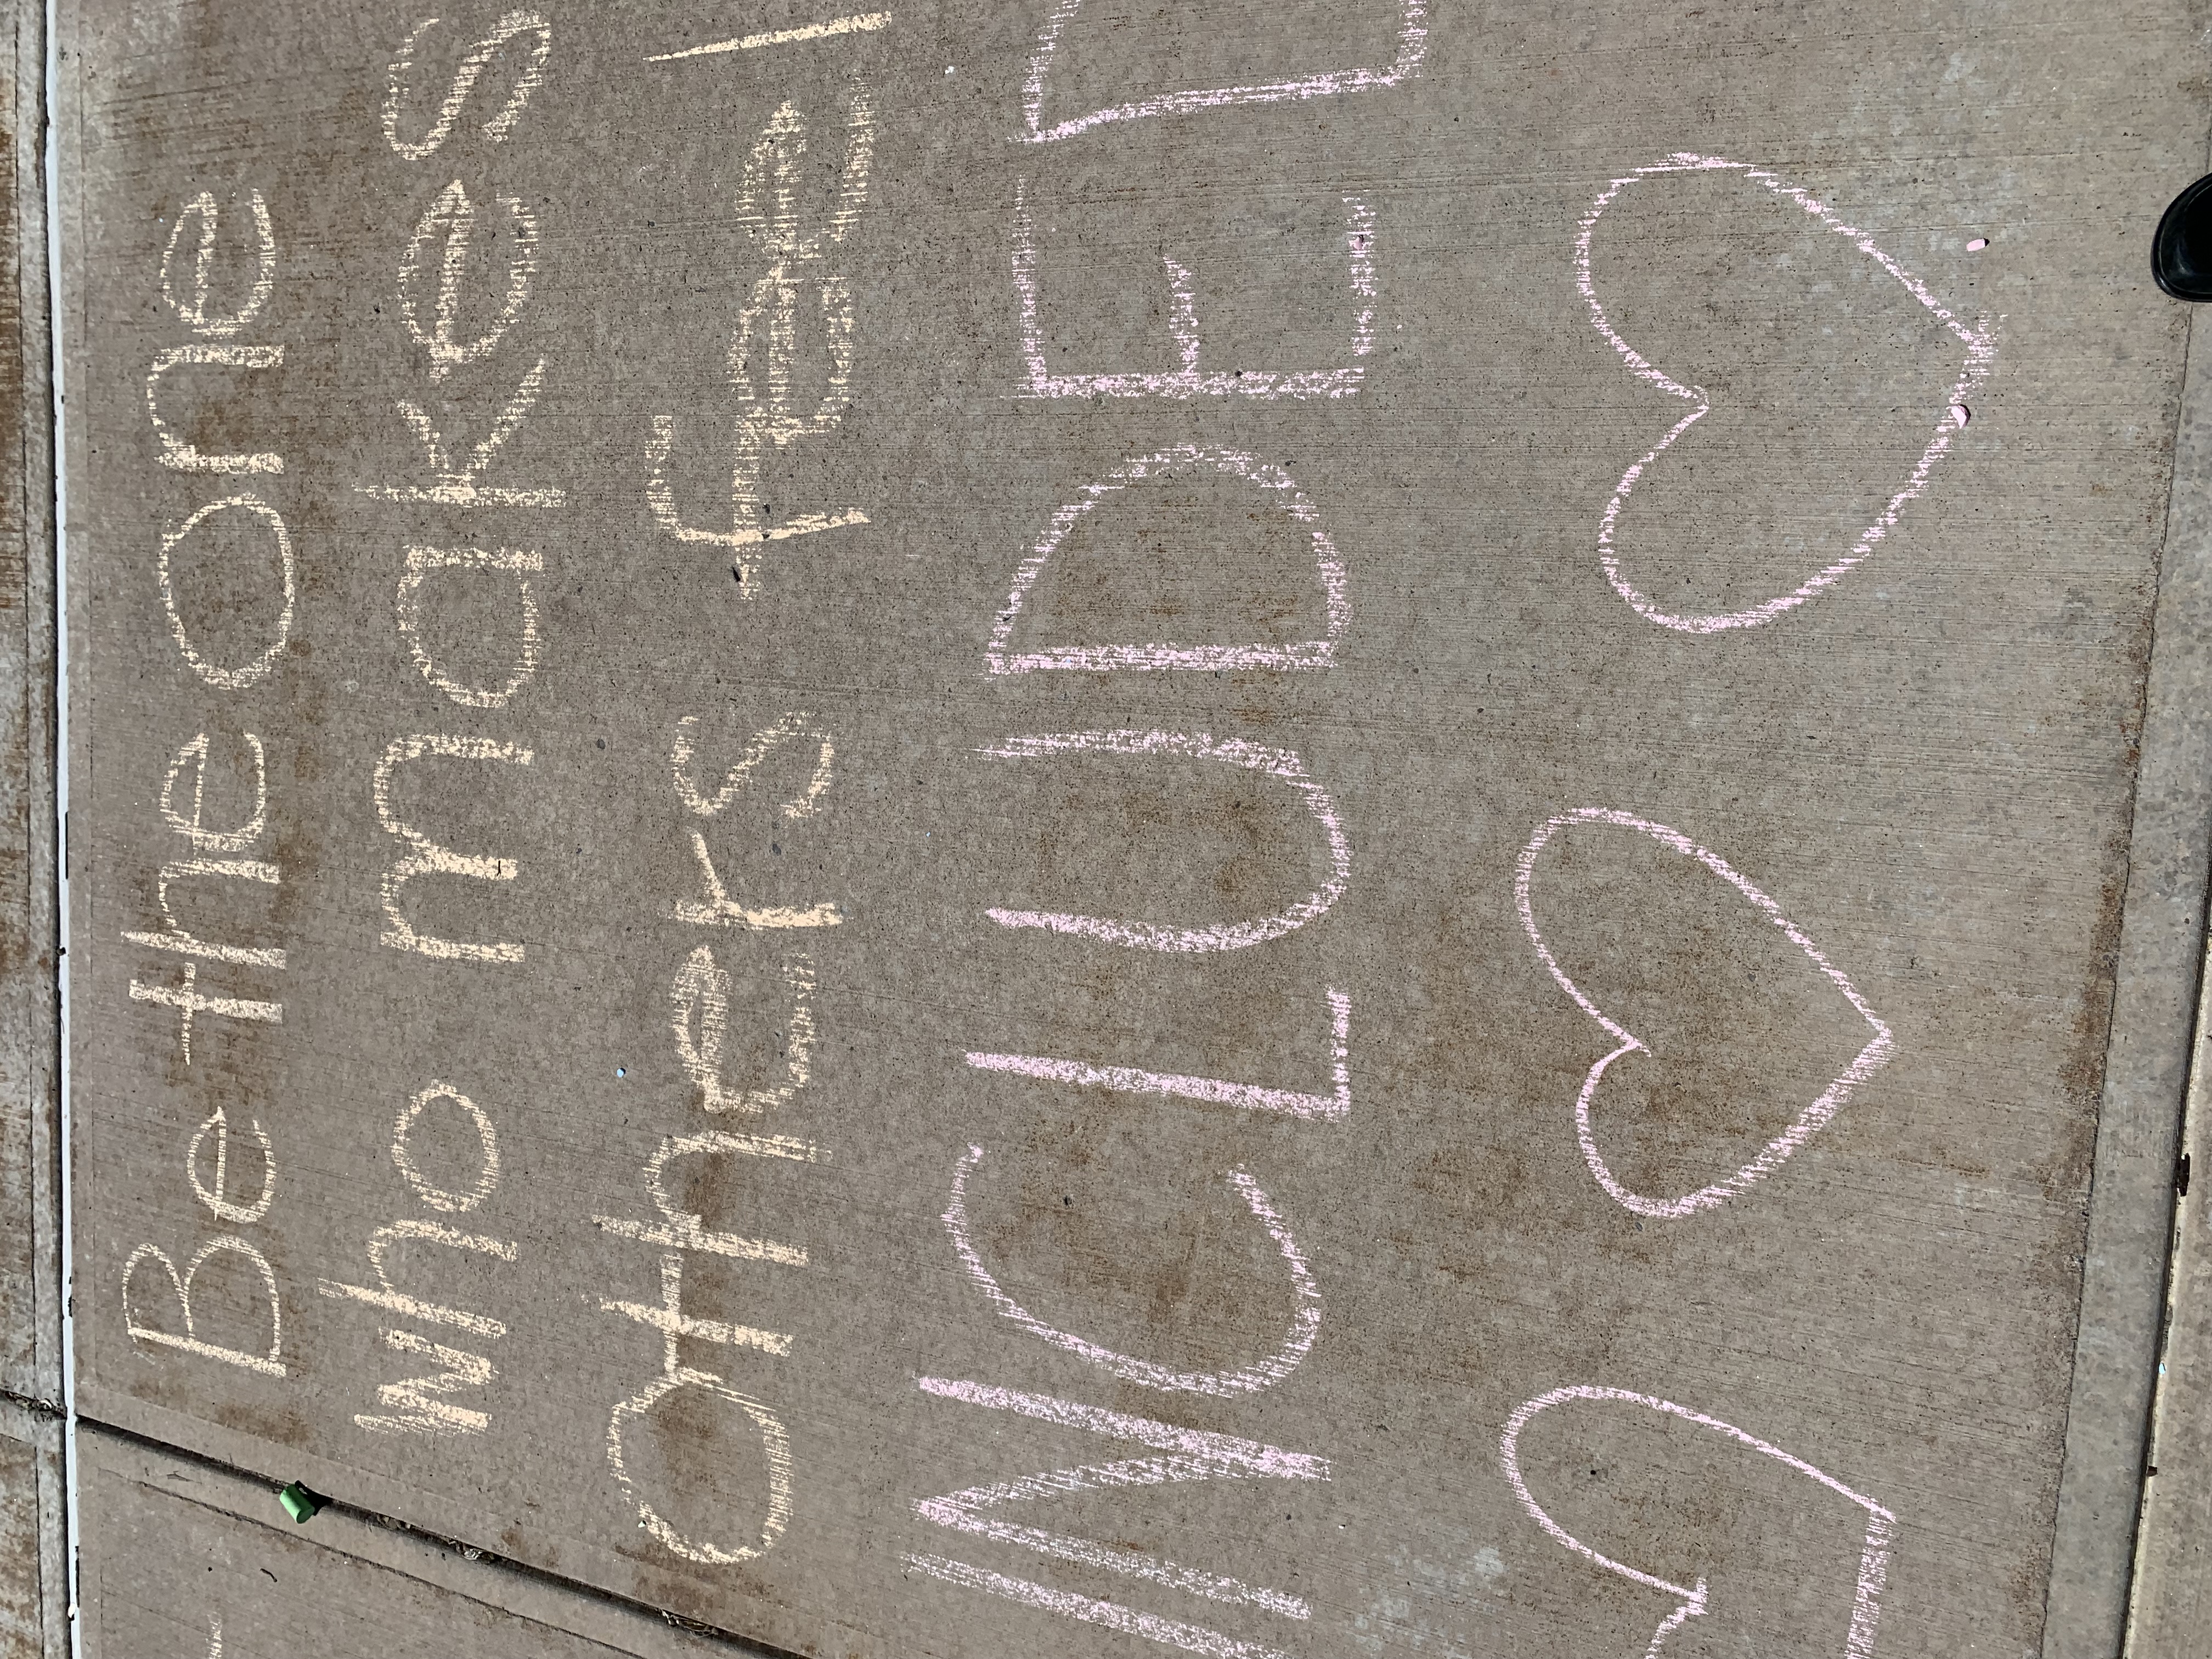 Be the one
who makes
others feel
INCLUDED